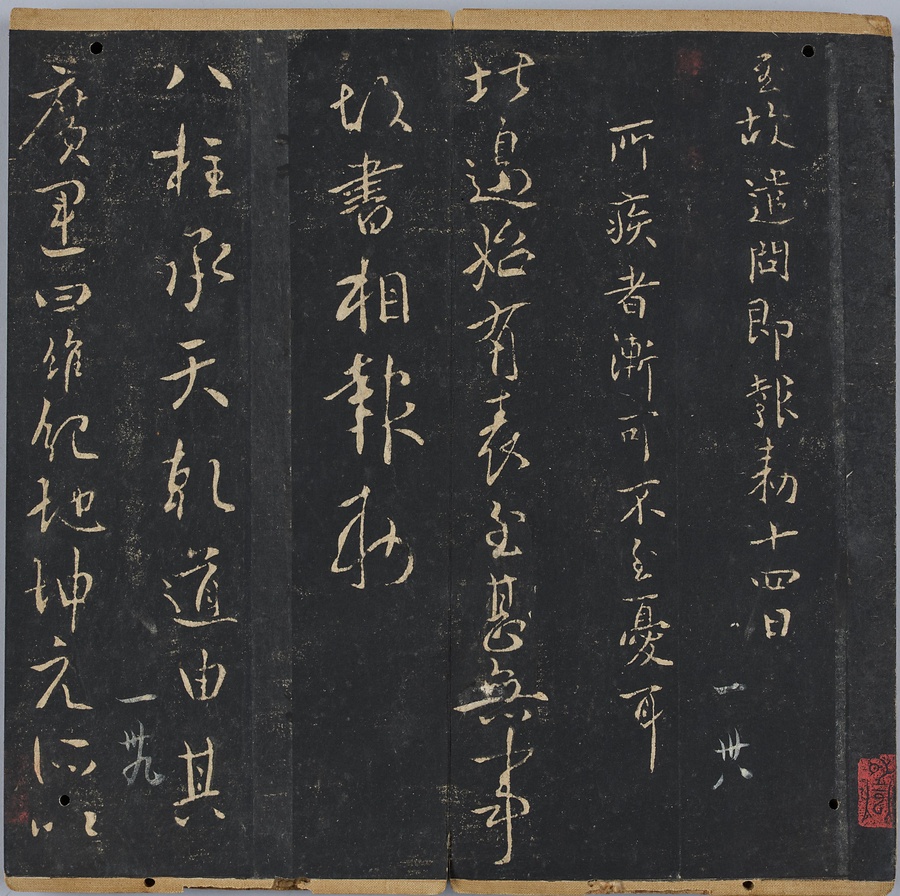 至故遣問即報勑十四日
一卅八
所疾者漸可不至憂耳
比邊始有表至甚無事
故書相報勑
八柱承天乾道由其
一卅九
廣運四維紀地坤元所以